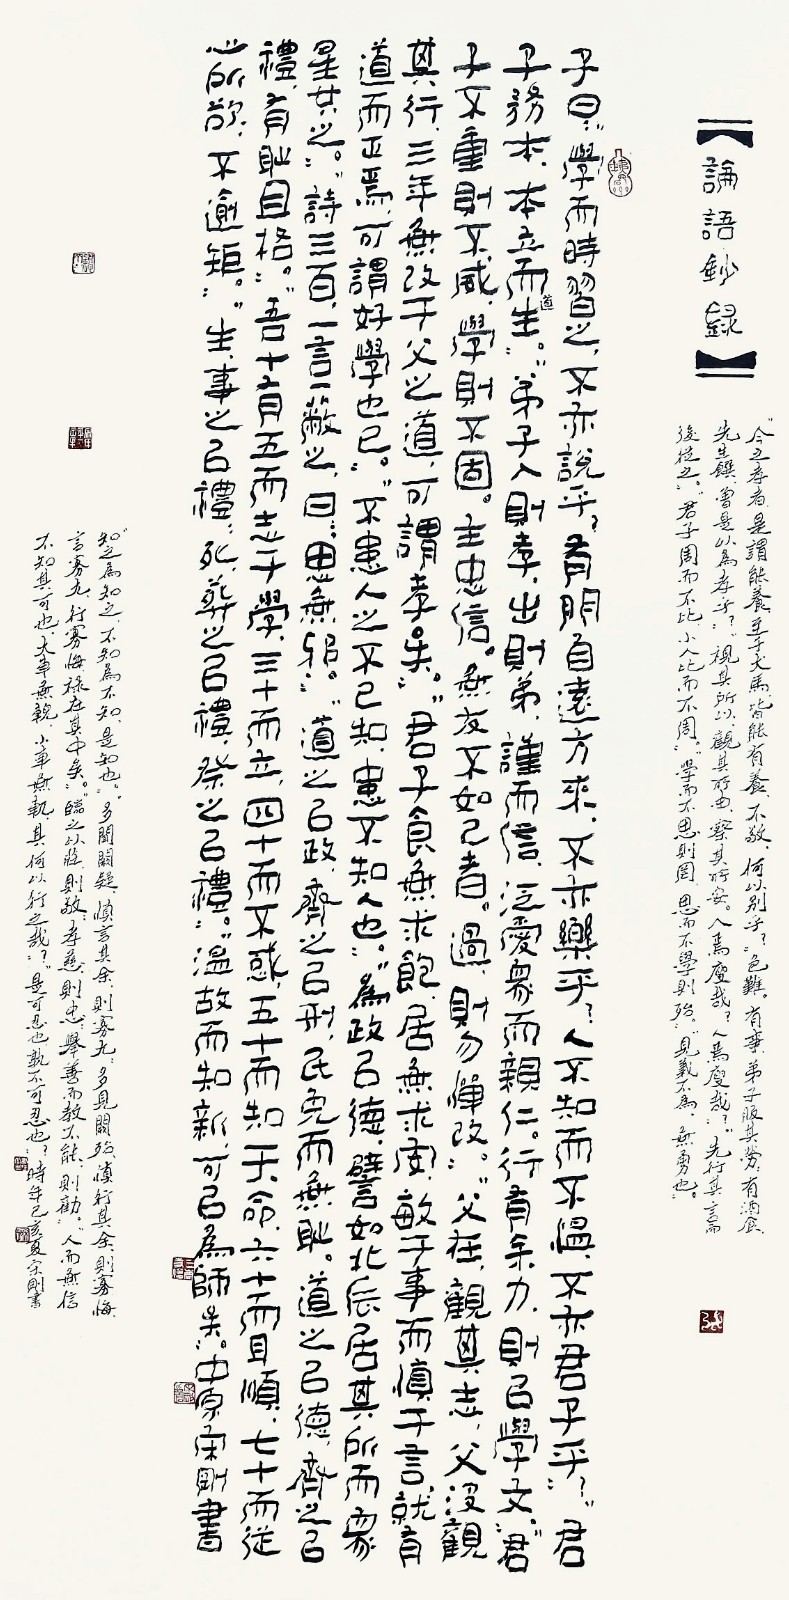 【論語鈔錄】
"今之孝者,是謂能養,至于犬馬,皆能有養,不敬,何以別乎?"色難。有事,弟子服其勞;有酒食,
先生饌,曾是以為孝乎?"視其所以,觀其所由,察其所安。人焉廋哉?人焉廋哉?"先行其言而
後從之。"君子周而不比,小人比而不周。"學而不思則罔,思而不學則殆。"見義不為,無勇也。
子曰:"學而時習之,不亦說乎?有朋自遠方來,不亦樂乎?人不知而不慍,不亦君子乎?"君
子務本,本立而道生。"弟子入則孝,出則弟,謹而信,泛愛眾而親仁。行有余力,則以學文。"君
子不重則不威,學則不固。主忠信。無友不如己者。過,則勿憚改。"父在,觀其志,父沒觀
其行,三年無改于父之道,可謂孝矣。"君子食無求飽,居無求安,敏于事而慎于言,就有
道而正焉,可謂好學也已。"不患人之不己知,患不知人也。"為政以德,譬如北辰居其所而眾
星共之。"詩三百,一言一蔽之,曰:思無邪。"道之以政,齊之以刑,民免而無恥。道之以德,齊之以
禮,有恥且格。"吾十有五而志于學,三十而立,四十而不惑,五十而知天命,六十而耳順,七十而從
心所欲,不逾矩。"生,事之以禮;死,葬之以禮,祭之以禮。"溫故而知新,可以為師矣。中原宋剛書
"知之為知之,不知為不知,是知也。"多聞闕疑,慎言其余,則寡尤;多見闕殆,慎行其余,則寡悔。
言寡尤,行寡悔,祿在其中矣。"臨之以莊,則敬;孝慈,則忠;舉善而教不能,則勸。"人而無信
不知其可也,大車無輗,小車無軏,其何以行之哉?"是可忍也,孰不可忍也?時年己亥夏宋剛書